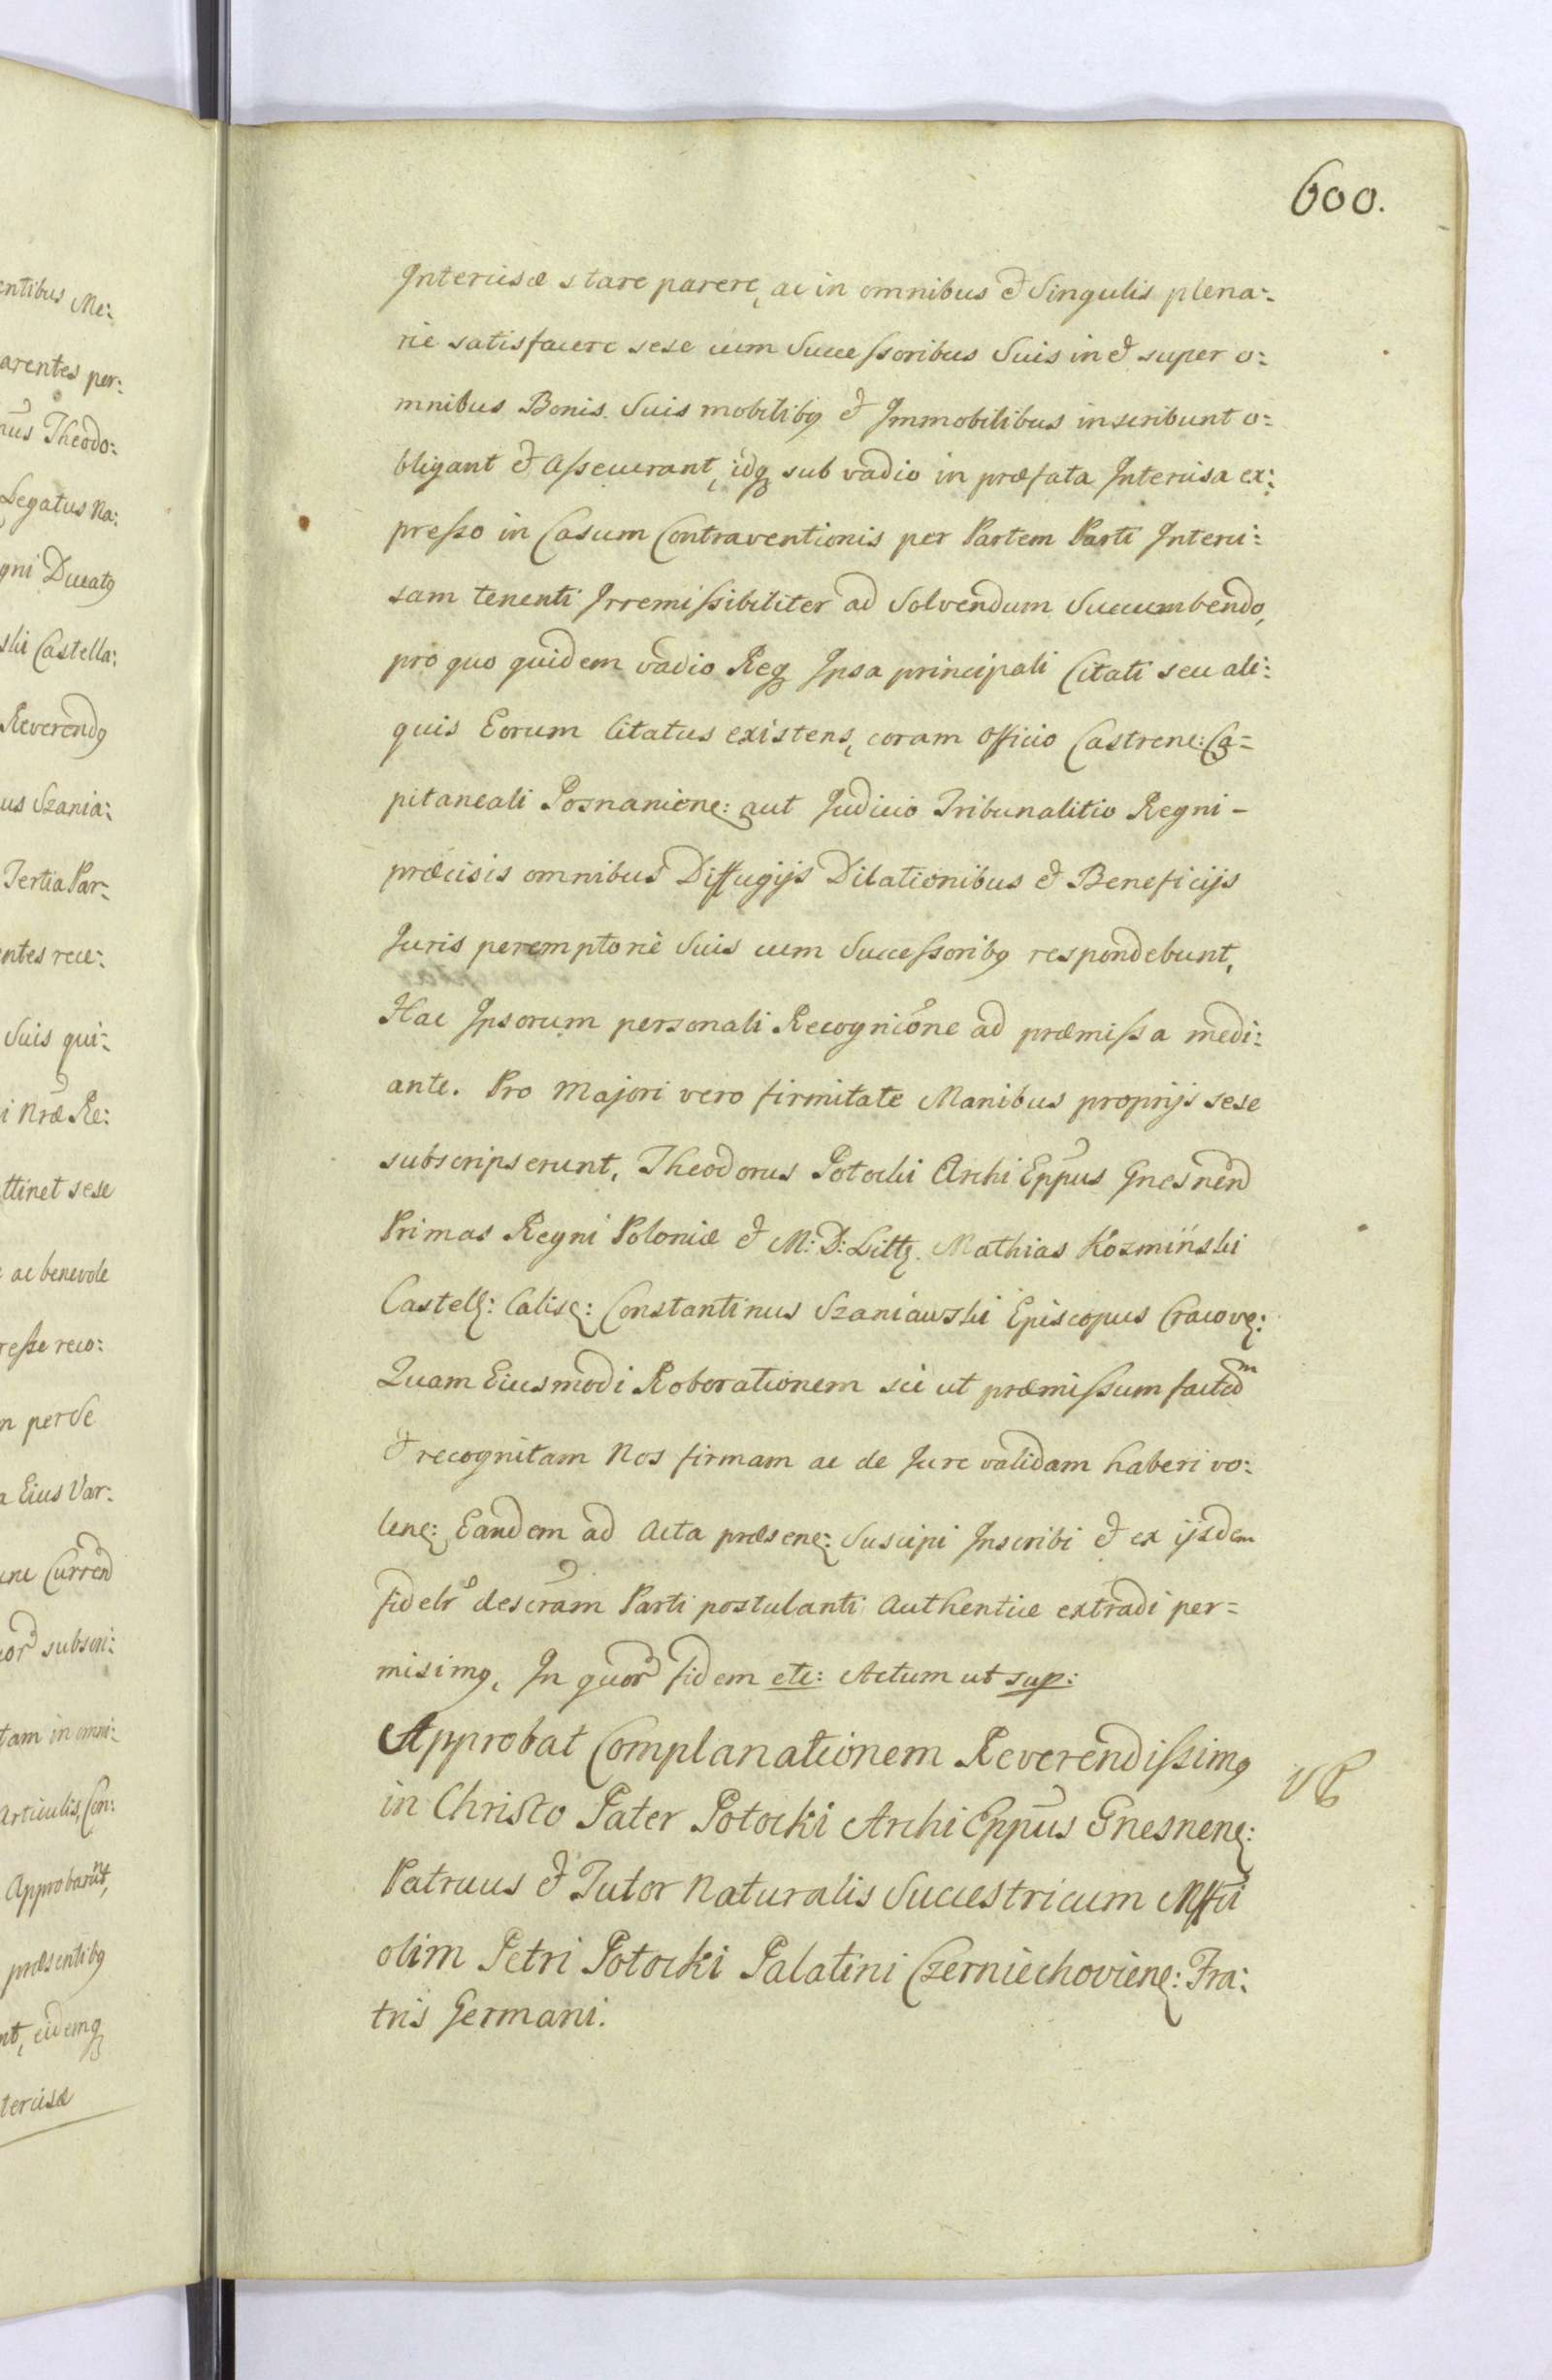 600.
Intercisæ stare parere, ac in omnibus & Singulis plena:
rie satisfacere sese cum Successoribus Suis in & super o:
mnibus Bonis Suis mobilibq & Immobilibus inscribunt o:
bligant & Assecurant, idq sub vadio in præfata Intercisa ex:
presso in Casum Contraventionis per Partem Parti Interci:
sam tenenti Irremissibiliter ad Solvendum Succumbendo,
pro quo quidem vadio Req Ipsa principali Citati seu ali:
quis Eorum Citatus existens, coram Officio Castrene: Ca=
pitaneali Posnaniene: aut Judicio Tribunalitio Regni -
præcisis omnibus Diffugijs Dilationibus & Beneficijs
Juris peremptorie Suis cum Successoribq respondebunt,
Hac Ipsorum personali Recognicone ad præmissa medi:
ante. Pro Majori vero firmitate Manibus proprijs sese
subscripserunt, Theodorus Potocki Archi Eppus Gnesnen
Primas Regni Poloniæ & M: D: Litt. Mathias Kozmiński
Castell: Calise: Constantinus Szaniawski Episcopus Cracov:
Quam Eiusmodi Roborationem sic ut præmissum factam
& recognitam Nos firmam ac de Jure validam haberi vo:
lene: Eandem ad Acta præsene: Suscipi Inscribi & ex ijsdem
fidelr descram Parti postulanti Authentice extradi per=
misimq, In quor fidem etc: Actum ut sup:
Approbat Complanationem Reverendissimq
in Christo Pater Potocki Archi Eppus Gnesnene:
Patruus & Tutor Naturalis Succestricum Mffci
olim Petri Potocki Palatini Czerniechoviene: Fra:
tris Germani.
entibus Me:
arentes per:
nus Theodo:
Legatus Na:
gni Ducatq
ski Castella:
Reverendq
us Szania:
Tertia Par:
entes rece:
Suis qui:
i Nræ Re:
ttinet sese
ac benevole
resse reco:
n per Se
a Eius Var:
Currend
or subscri:
tam in omni:
Articulis, Con:
Approbarut,
præsentibq
nt, eidemq
tercisæ